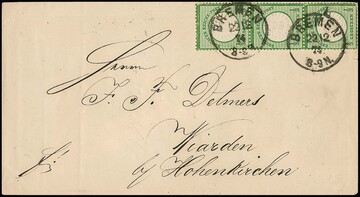 BREMEN
22 2
74
8-9N.
BREMEN
22 2
74
8-9N.
Herrn
F. F. Delmers
Wiarden
by Hohenkirchen